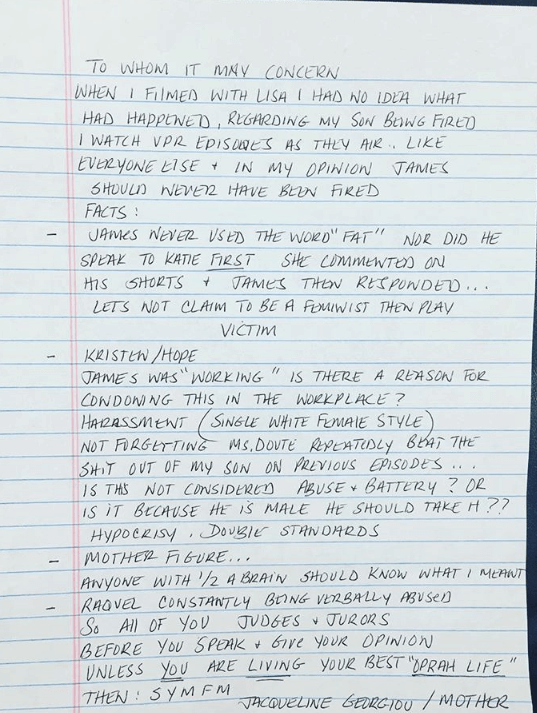 TO WHOM IT MAY CONCERN
WHEN I FILMED WITH LISA I HAD NO IDEA WHAT
HAD HAPPENED, REGARDING MY SON BEING FIRED
I WATCH VPR EPISODES AS THEY AIR.. LIKE
EVERYONE ELSE + IN MY OPINION JAMES
SHOULD NEVER HAVE BEEN FIRED
FACTS:
- JAMES NEVER USED THE WORD "FAT" NOR DID HE
SPEAK TO KATIE FIRST SHE COMMENTED ON
HIS SHORTS + JAMES THEN RESPONDED...
LETS NOT CLAIM TO BE A FEMINIST THEN PLAY
VICTIM
- KRISTEN/HOPE
JAMES WAS "WORKING" IS THERE A REASON FOR
CONDONING THIS IN THE WORKPLACE?
HARASSMENT (SINGLE WHITE FEMALE STYLE)
NOT FORGETTING MS. DOUTE REPEATEDLY BEAT THE
SHIT OUT OF MY SON ON PREVIOUS EPISODES....
IS THIS NOT CONSIDERED ABUSE + BATTERY? OR
IS IT BECAUSE HE IS MALE HE SHOULD TAKE IT??
HYPOCRISY. DOUBLE STANDARDS
- MOTHER FIGURE...
ANYONE WITH 1/2 A BRAIN SHOULD KNOW WHAT I MEANT
- RAQUEL CONSTANTLY BEING VERBALLY ABUSED
SO ALL OF YOU JUDGES + JURORS
BEFORE YOU SPEAK + GIVE YOUR OPINION
UNLESS YOU ARE LIVING YOUR BEST "OPRAH LIFE"
THEN: SYMFM
JACQUELINE GEORGIOU / MOTHER